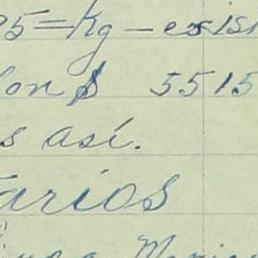 25=Kg - exis
lon $ 5515
s así.
arios